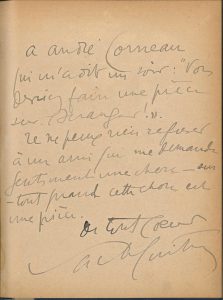 à André Corneau
qui m'a dit un soir: "Vous
devriez faire une pièce
sur Béranger!".
Je ne peux rien refuser
à un ami qui me demande
gentiment une chose — sur-
tout quand cette chose est
une pièce.
De tout Cœur
Sacha Guitry